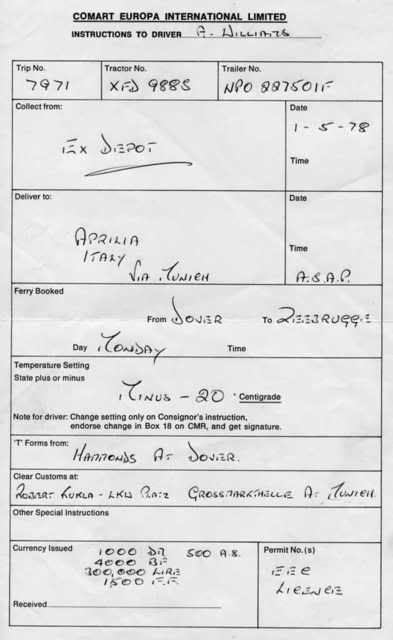 COMART EUROPA INTERNATIONAL LIMITED
INSTRUCTIONS TO DRIVER A. WILLIAMS
Trip No. Tractor No. Trailer No.
7971 XFD 988S NPO 887501F
Collect from: Date
EX DEPOT 1-5-78
Time
Deliver to: Date
APRILIA
ITALY Time
VIA MUNICH A.S.A.P.
Ferry Booked
From DOVER To ZEEBRUGGE
Day MONDAY Time
Temperature Setting
State plus or minus
MINUS - 20 ° Centigrade
Note for driver: Change setting only on Consignor's instruction,
endorse change in Box 18 on CMR, and get signature.
'T' Forms from:
HAMMONDS AT DOVER.
Clear Customs at:
ROBERT KUKLA - LKW PLATZ GROSSMARKTHELLE AT MUNICH.
Other Special Instructions
Currency Issued Permit No.(s)
1000 DM 500 A.S.
4000 BF
300,000 LIRE
1500 F.F.
EEC
LICENCE
Received